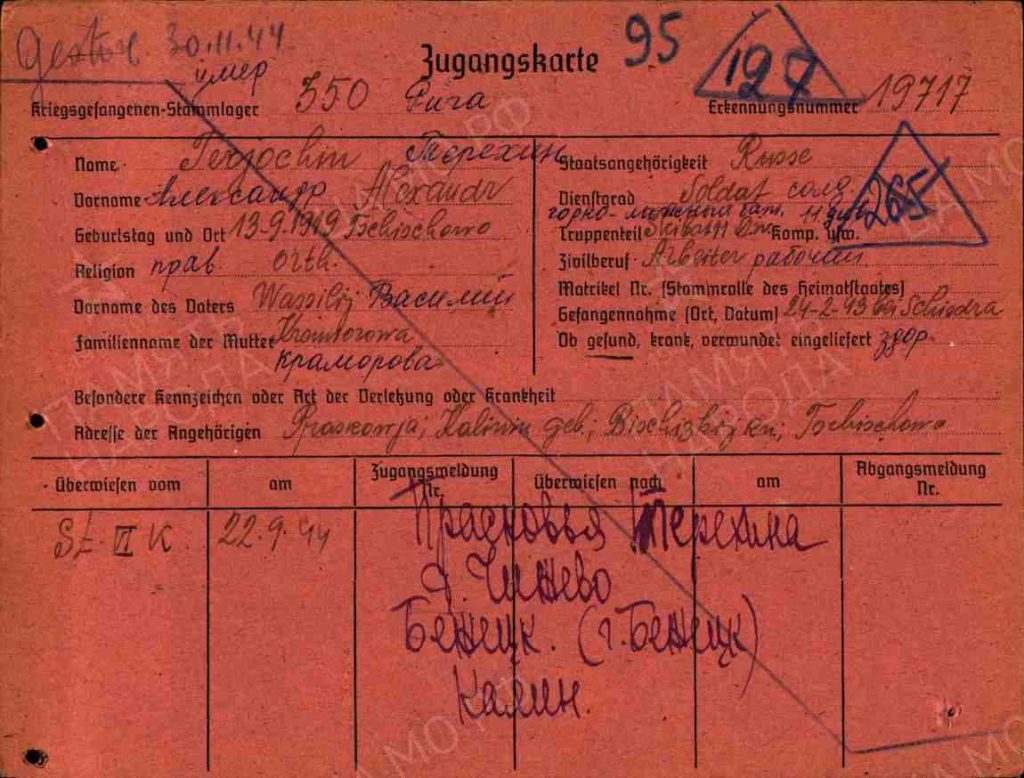 gestor. 30.11.44
умер
Zugangskarte 95 127
Kriegsgefangenen-Stammlager 350 Рига Erkennungsnummer 19717
Name Terjochin Терехин
Staatsangehörigkeit Russe
Vorname Александр Alexandr
Dienstgrad Soldat солд.
Geburtstag und Ort 13-9.1919 Tschischowo
горно-лыжный бат. 11 див. 265
Truppenteil Skibat 11 Div. Komp. usw.
Religion прав orth.
Zivilberuf Arbeiter рабочий
Vorname des Vaters Wassilij Василий
Matrikel Nr. (Stammrolle des Heimatstaates)
Gefangennahme (Ort, Datum) 24-2-43 bei Schisdra
Familienname der Mutter
Краморова
Ob gesund, krank, verwundet eingeliefert здор.
Besondere Kennzeichen oder Art der Verletzung oder Krankheit
Adresse der Angehörigen Praskowja; Kalinin geb.; Tschischowo
Überwiesen vom am Zugangsmeldung Nr. Überwiesen nach am Abgangsmeldung Nr.
St. II K. 22.9.44
Прасковья Терехина
д. Чижево
Бежецк. (г. Бежецк)
Калин.